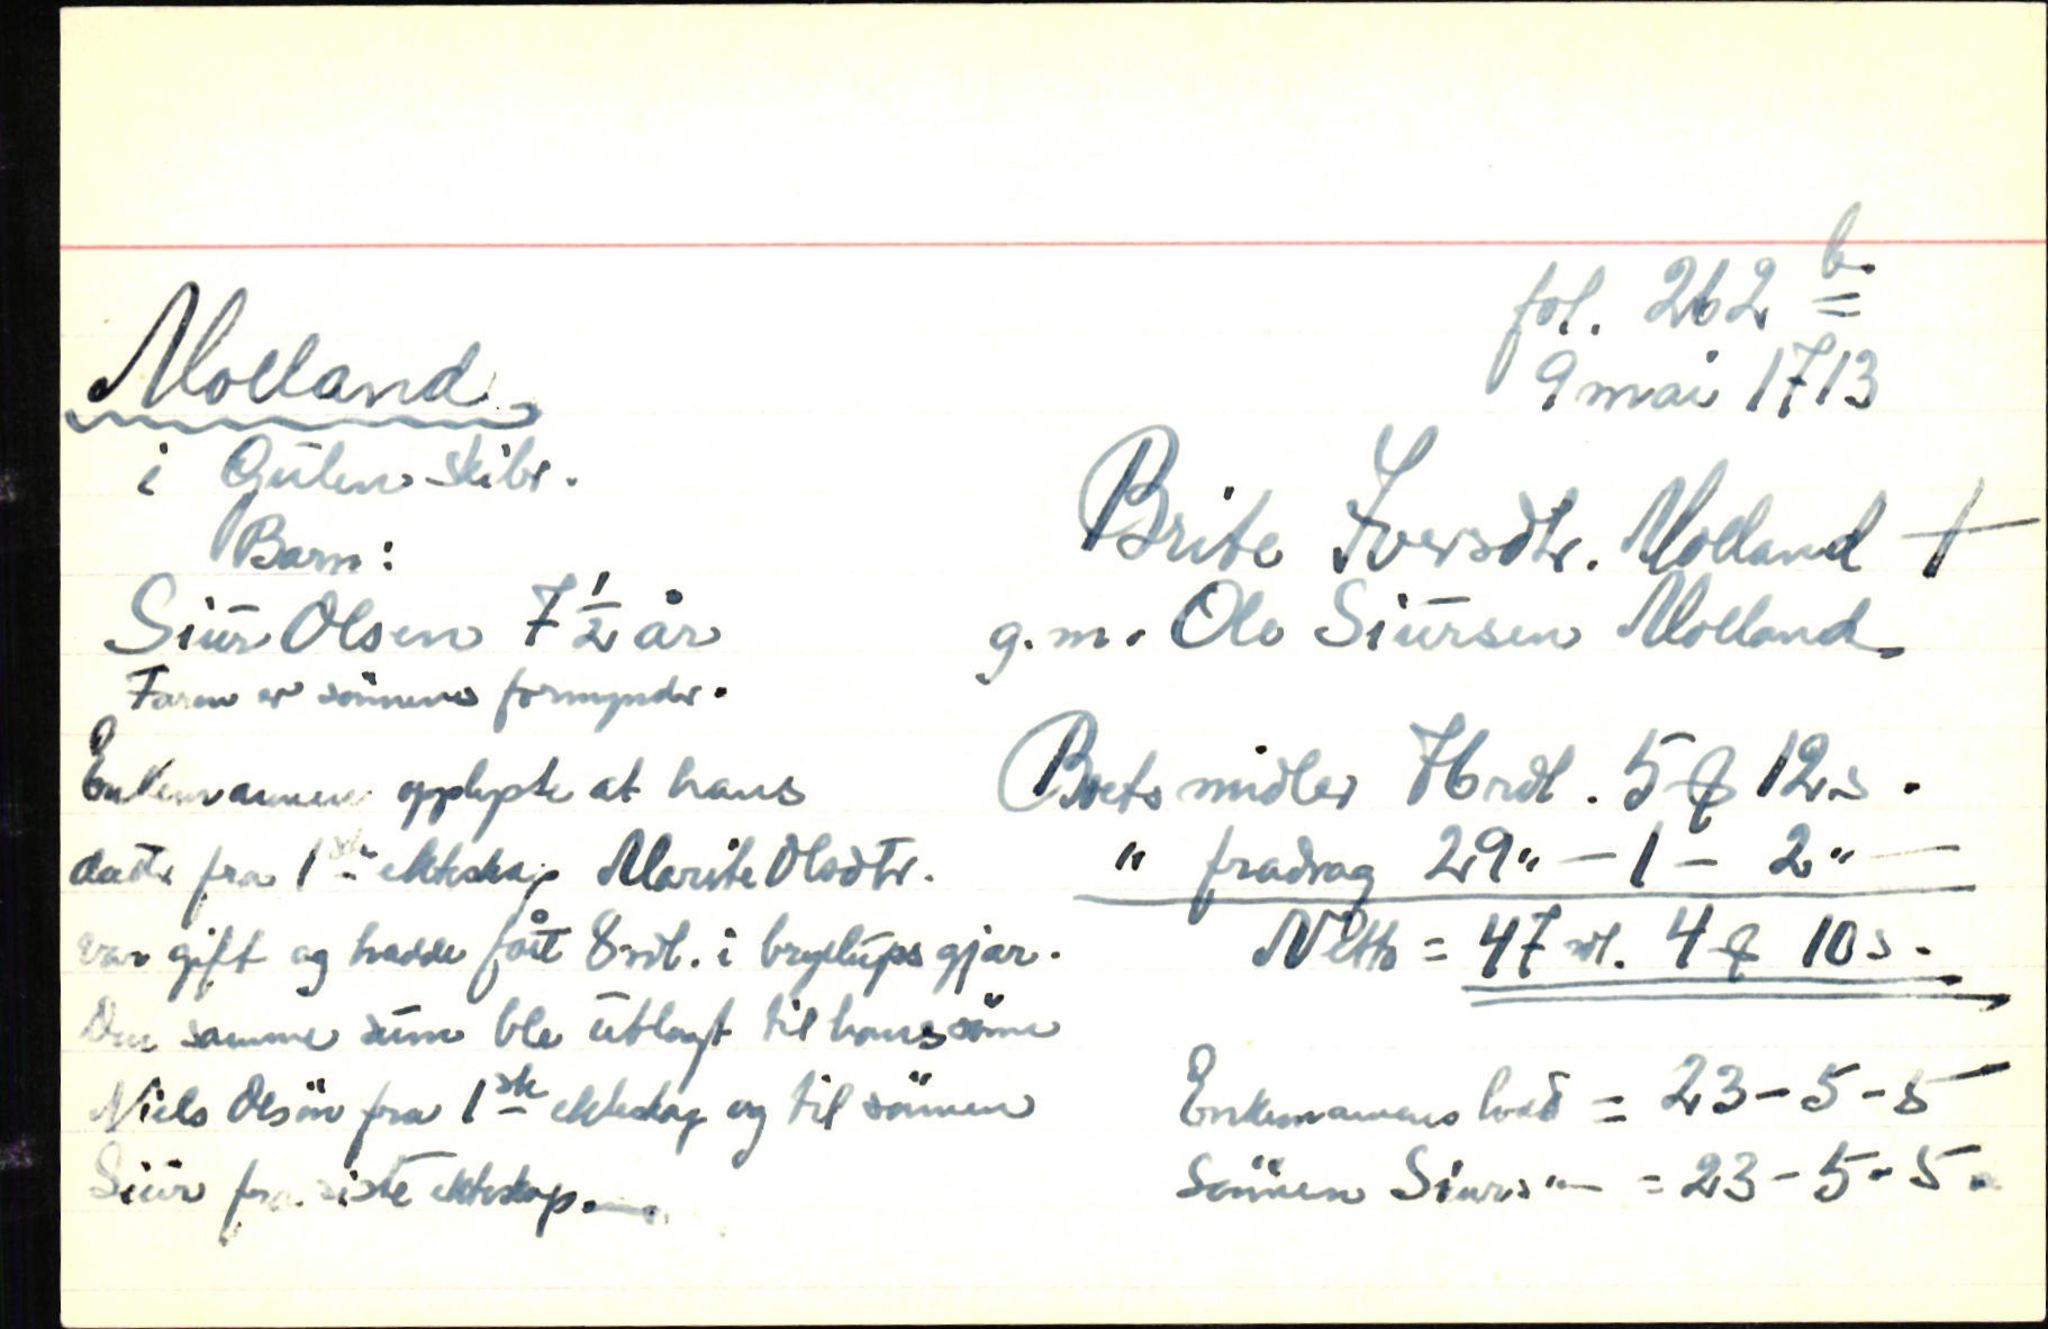 fol. 262 b.
9 mai 1713
Molland
i Gulen skibr.
Barn:
Siur Olsen 7 1/2 år
Faren er sönnens formynder.
Brite Iversdtr. Molland †
g.m. Ole Siursen Molland
Enkemannen opplyste at hans
datter fra 1ste ekteskap Marite Olsdtr.
var gift og hadde fått 8 rdl. i bryllupsgjær.
Den samme sum ble utlagt til hans sönn
Niels Olsön fra 1ste ekteskap og til sönnen
Siur fra siste ekteskap.
Boets midler 76 rdl. 5 ℔ 12 s.
" fradrag 29 " — 1 — 2 " —
Netto = 47 rdl. 4 ℔ 10 s.
Enkemannens lodd = 23 - 5 - 5
Sönnen Siurs " — = 23 - 5 - 5